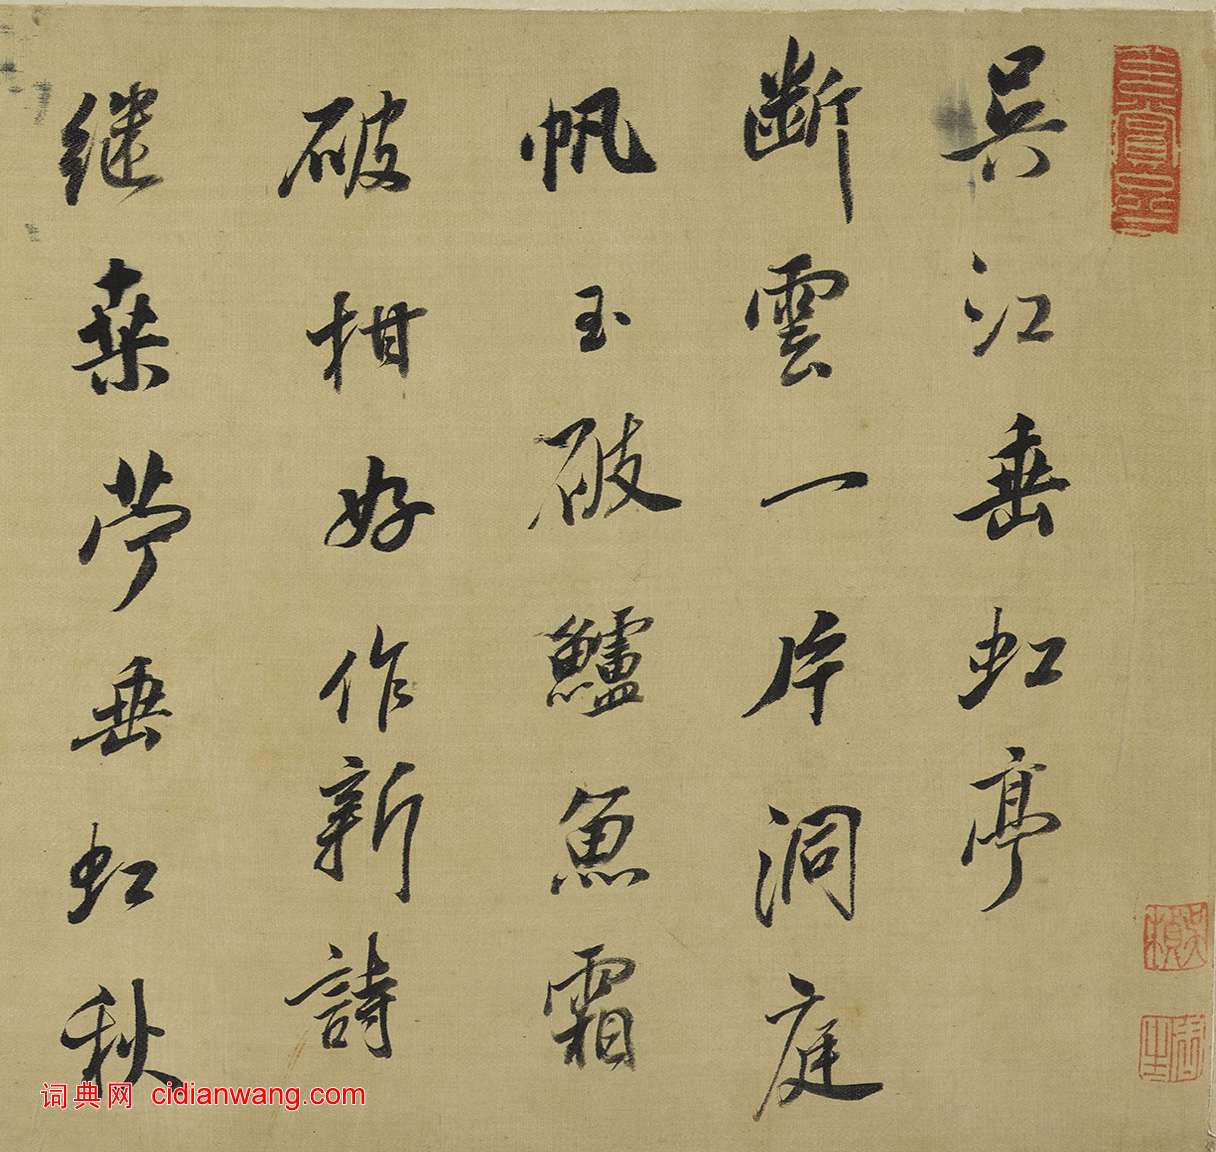 吳江垂虹亭
斷雲一片洞庭
帆玉破鱸魚霜
破柑好作新詩
继桑苧垂虹秋
词典网 cidianwang.com